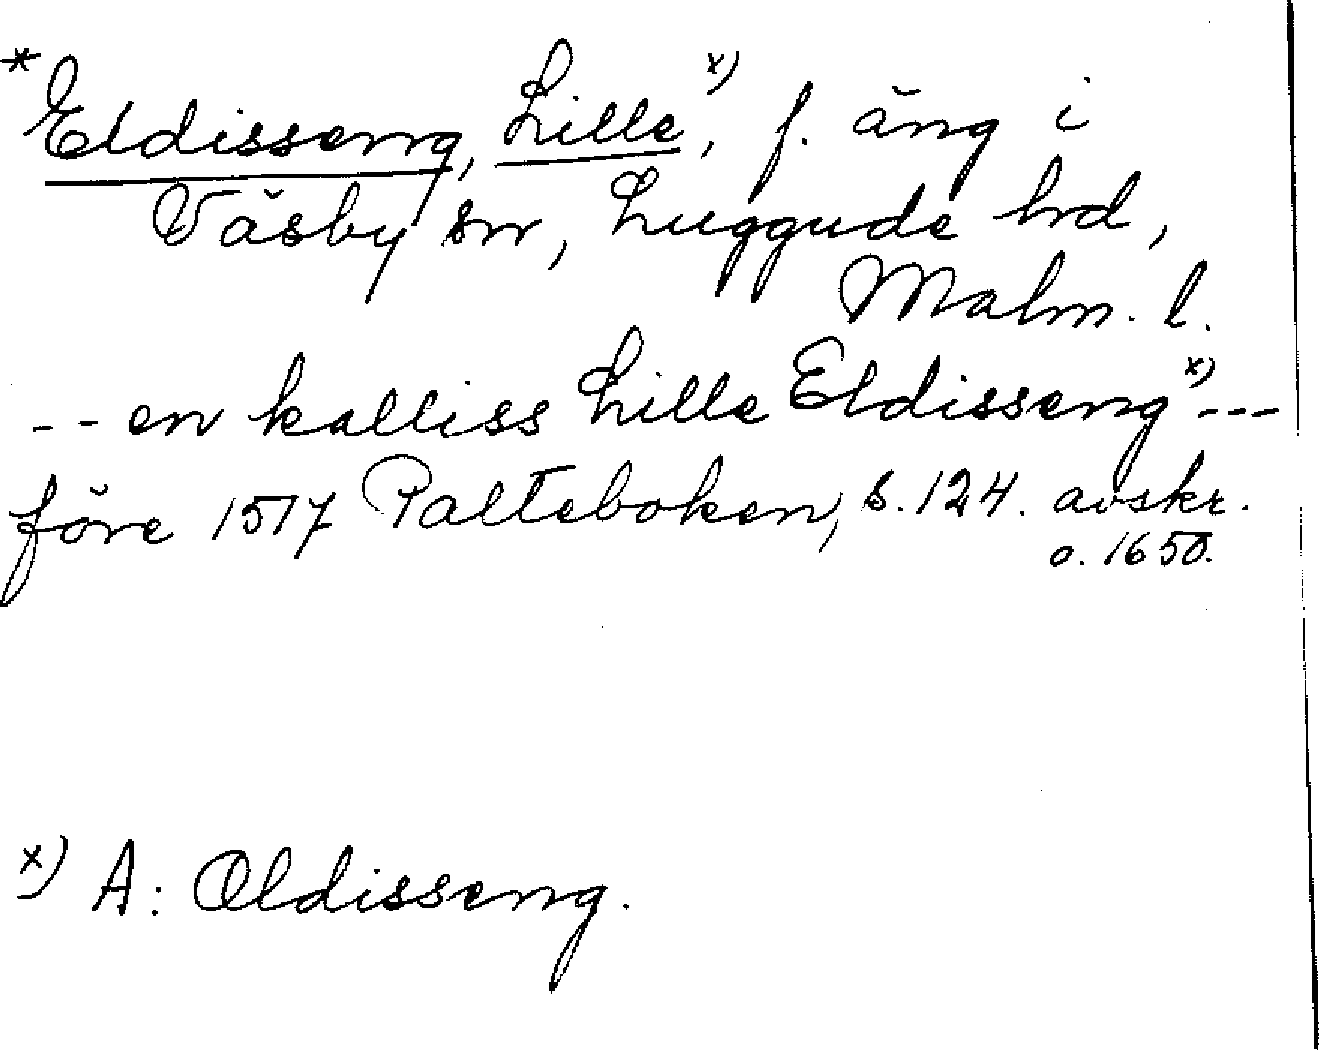 * Eldisseng, Lille x), f. äng i
Väsby sn, Luggude hd,
Malm. l.
-- en kalliss Lille Eldisseng x) ---
före 1517 Palteboken, s. 124. avskr.
o. 1650.
x) A: Oldisseng.